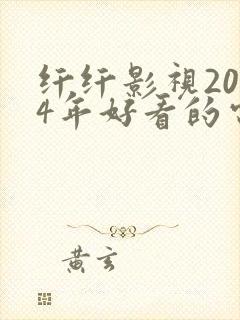 纤纤影视20
4年好看的
黄玄